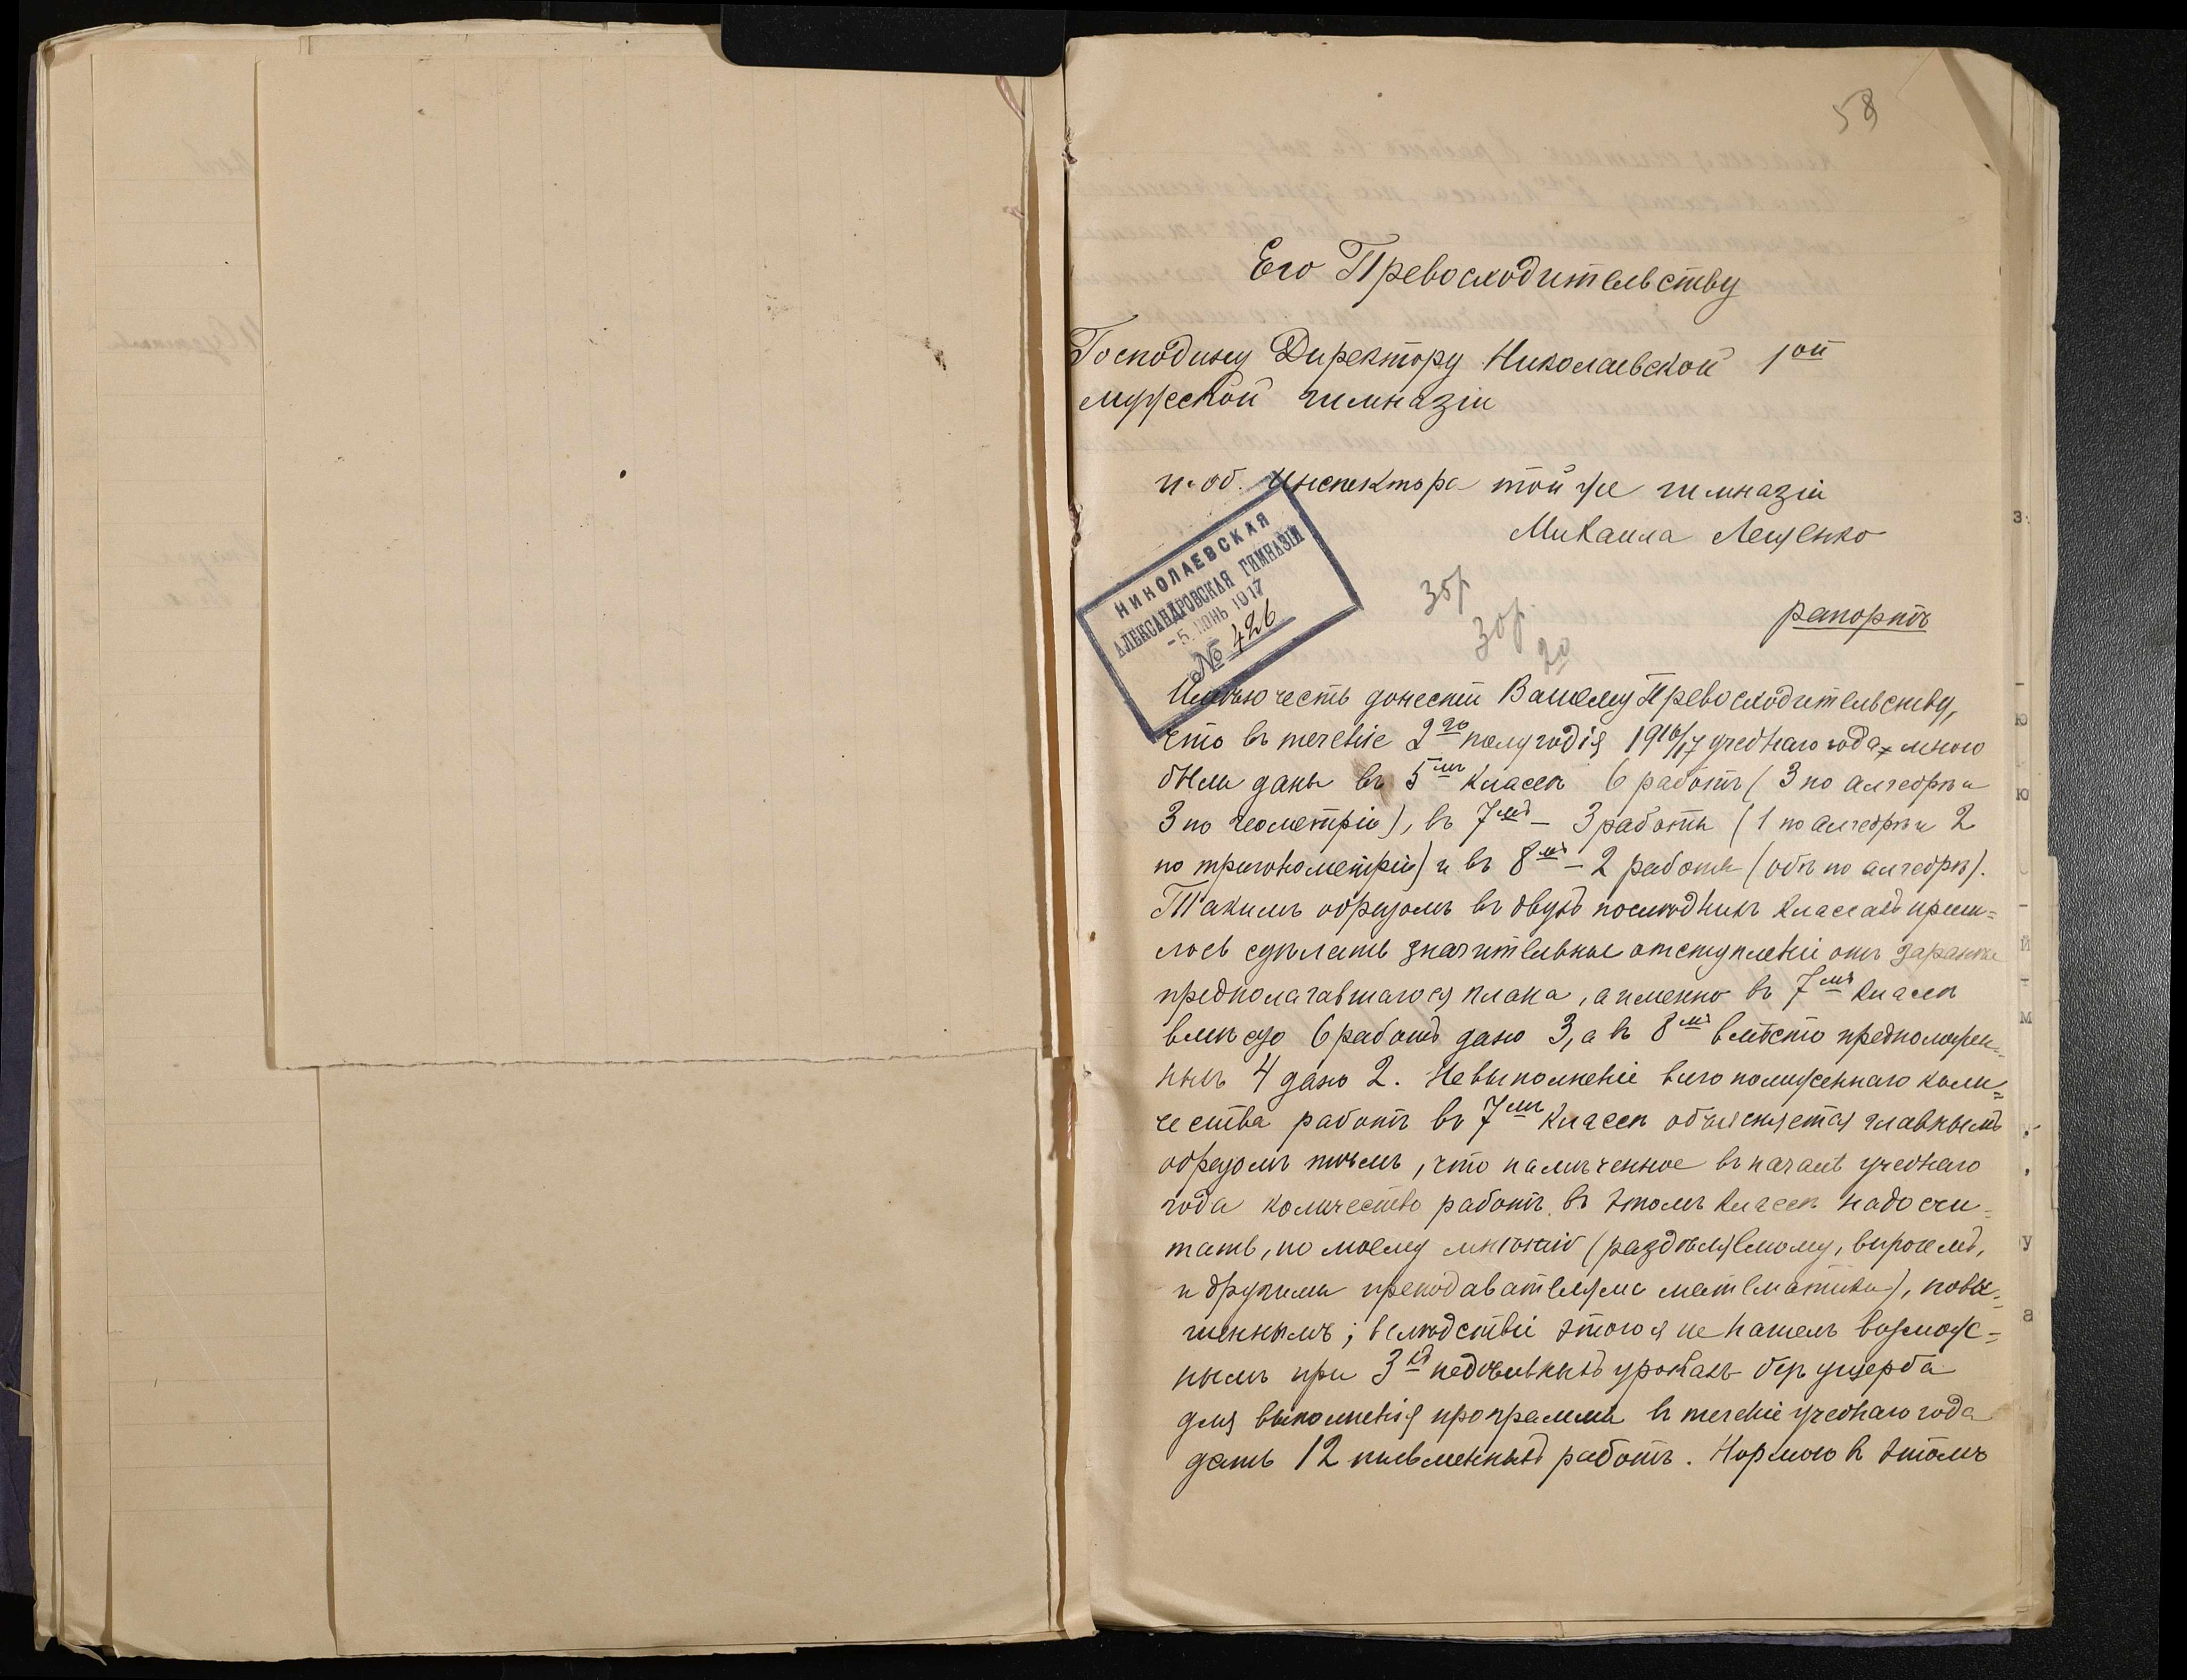 58
Его Превосходительству
Господину Директору Николаевской 1ой
мужской гимназіи
и. об. Инспектора той же гимназіи
Михаила Лещенко
рапортъ
НИКОЛАЕВСКАЯ
АЛЕКСАНДРОВСКАЯ ГИМНАЗІЯ
-5. ІЮНЬ 1917
№ 426
Имѣю честь донести Вашему Превосходительству,
что въ теченіе 2го полугодія 1916/17 учебнаго года мною
были даны въ 5мъ классѣ 6 работъ (3 по алгебрѣ и
3 по геометріи), въ 7мъ – 3 работы (1 по алгебрѣ и 2
по тригонометріи) и въ 8мъ – 2 работы (обѣ по алгебрѣ).
Такимъ образомъ въ двухъ послѣднихъ классахъ приш=
лось сдѣлать значительное отступленіе отъ заранѣе
предполагавшагося плана, а именно въ 7мъ классѣ
вмѣсто 6 работъ дано 3, а въ 8мъ вмѣсто предположен=
ныхъ 4 дано 2. Невыполненіе всего положеннаго коли=
чества работъ въ 7мъ классѣ объясняется главнымъ
образомъ тѣмъ, что намѣченное въ началѣ учебнаго
года количество работъ въ этомъ классѣ надо счи=
тать, по моему мнѣнію (раздѣляемому, впрочемъ,
и другими преподавателями математики), повы=
шеннымъ; вслѣдствіе этого я не нашелъ возмож=
нымъ при 3хъ недѣльныхъ урокахъ безъ ущерба
для выполненія программы въ теченіе учебнаго года
дать 12 письменныхъ работъ. Нормою въ этомъ